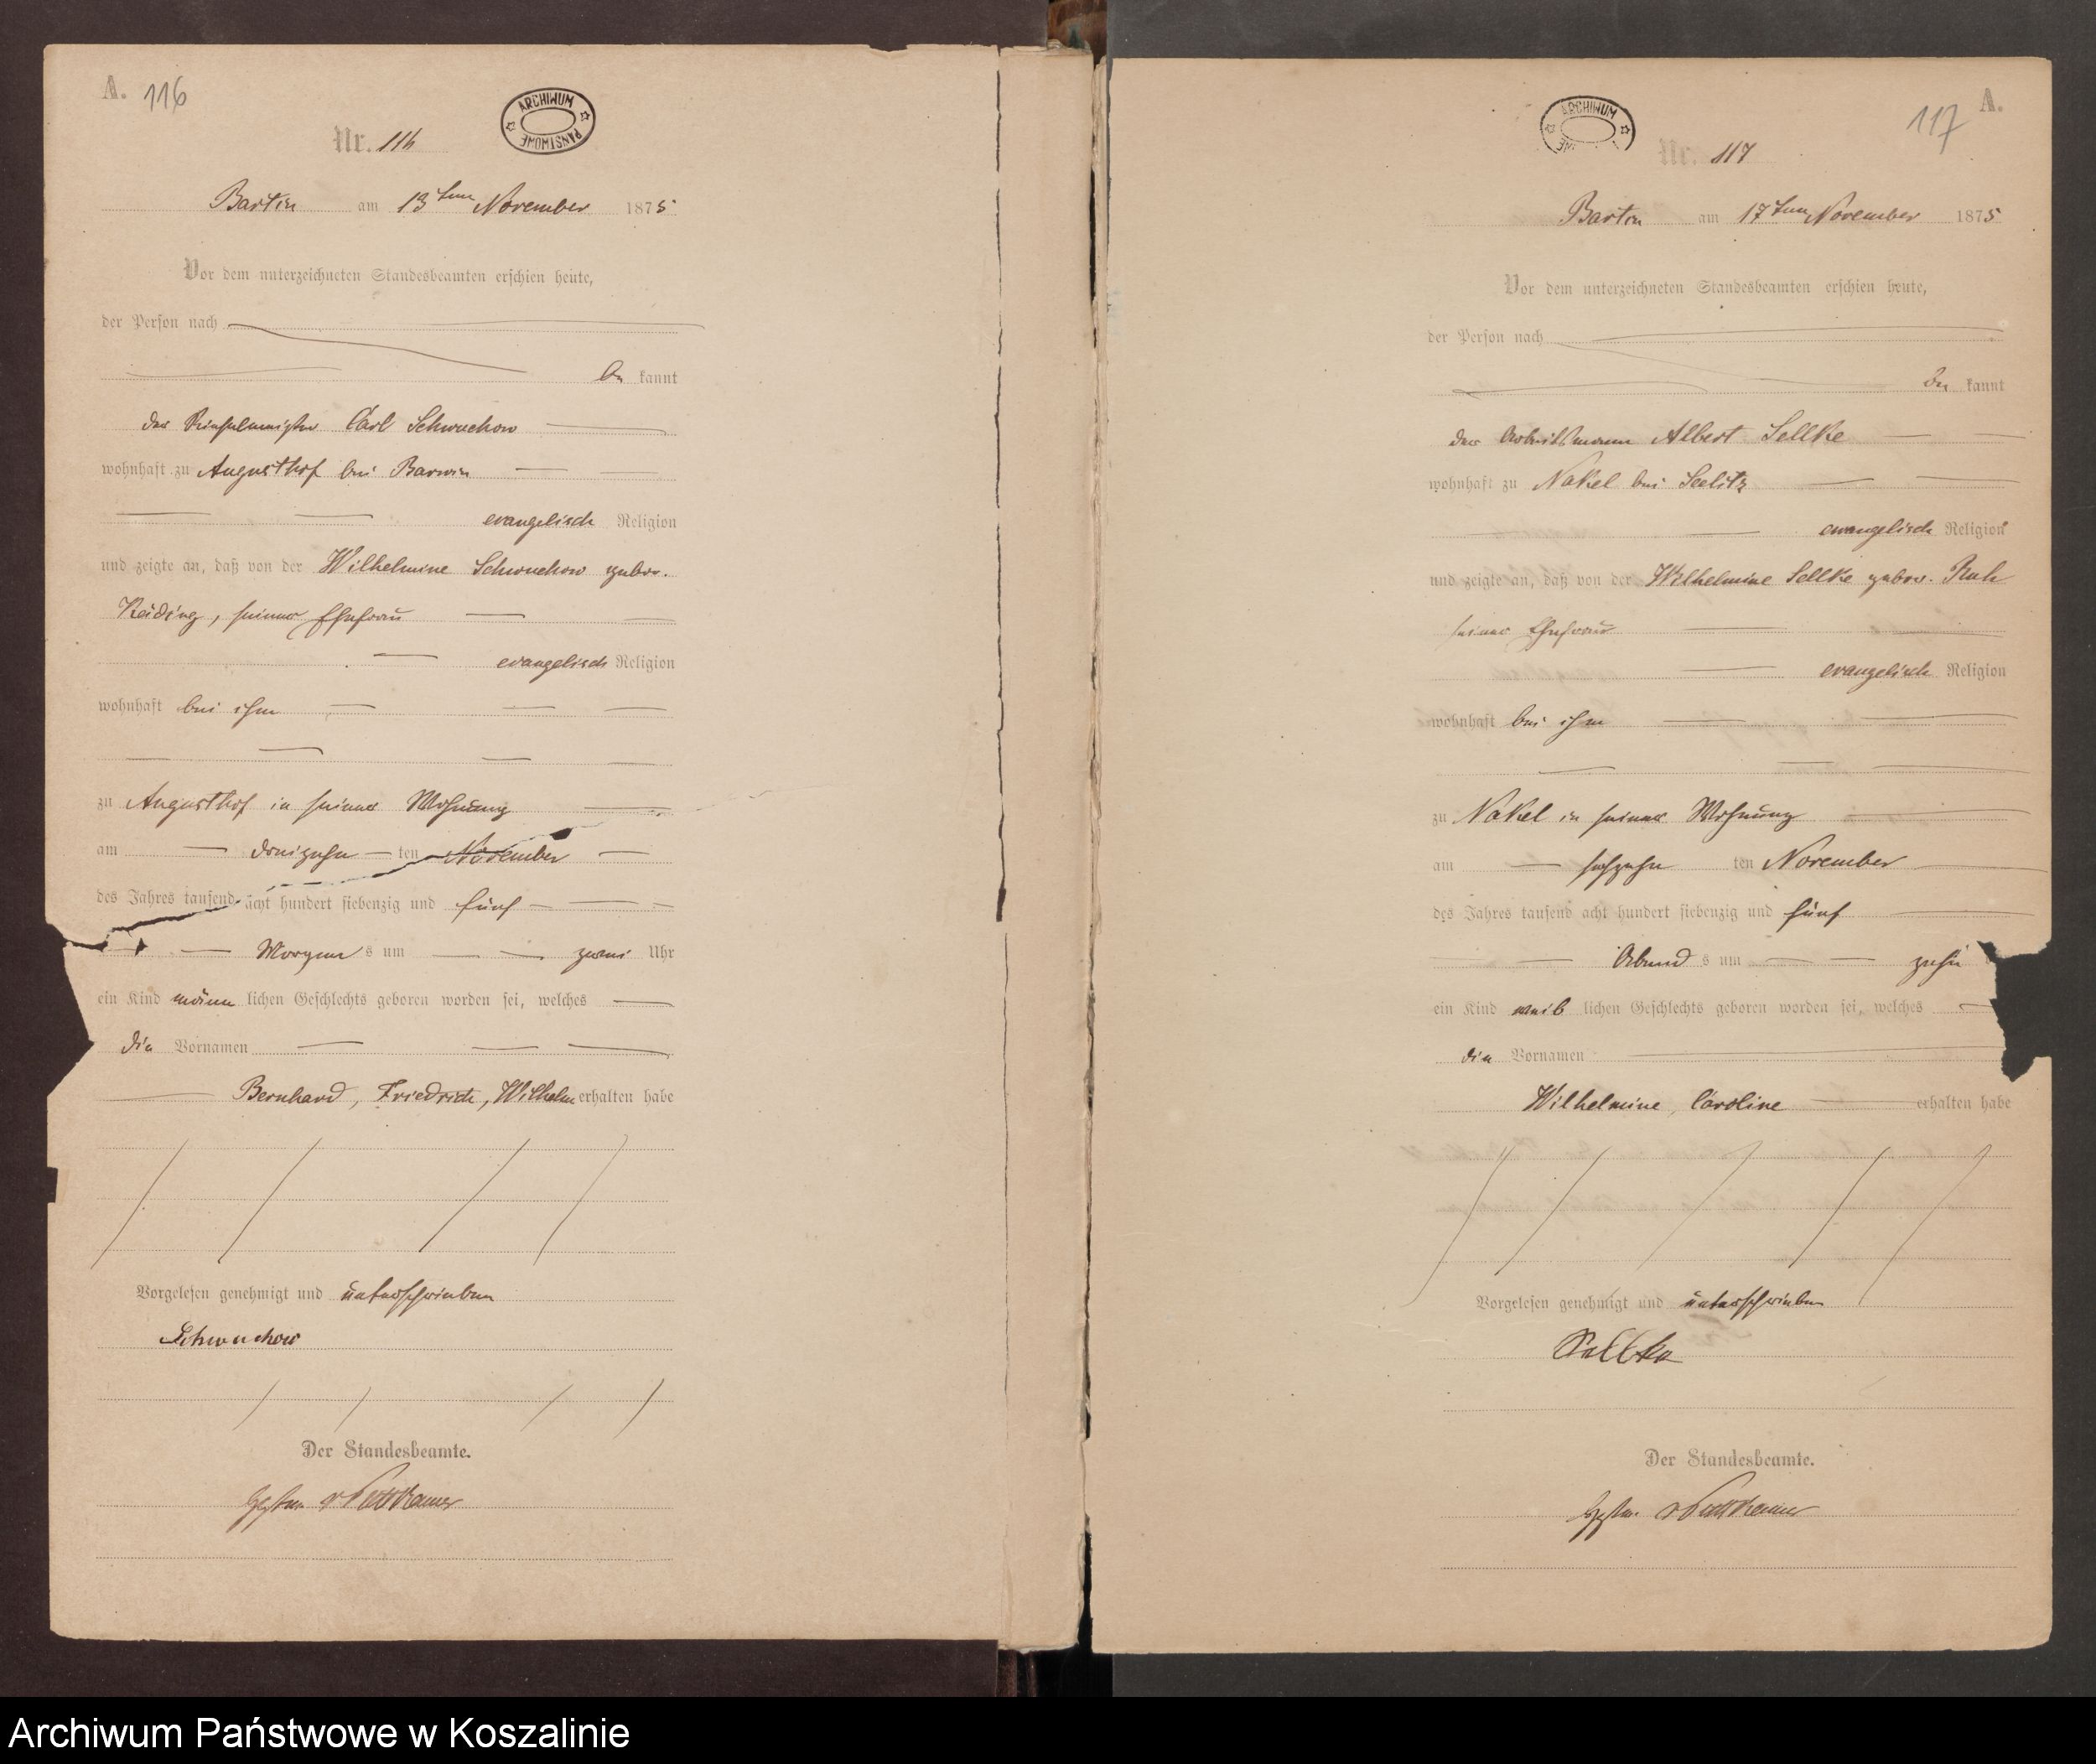 A. 116
ARCHIWUM PAŃSTWOWE
Nr. 116
Bartin am 13ten November 1875
Vor dem unterzeichneten Standesbeamten erschien heute,
der Person nach
be kannt
der Carl Schwuchow
wohnhaft zu Augusthof bei Barwin
evangelisch Religion
und zeigte an, daß von der Wilhelmine Schwuchow gebor.
seiner Ehefrau
evangelisch Religion
wohnhaft bei ihm
zu Augusthof in seiner Wohnung
am dreizehn ten November
des Jahres tausend acht hundert siebenzig und fünf
Morgen s um zwei Uhr
ein Kind männ lichen Geschlechts geboren worden sei, welches
die Vornamen
Bernhard, Friedrich, Wilhelm erhalten habe
Vorgelesen genehmigt und unterschrieben
Schwuchow
Der Standesbeamte.
v Puttkamer
117 A.
ARCHIWUM
Nr. 117
Bartin am 17ten November 1875
Vor dem unterzeichneten Standesbeamten erschien heute,
der Person nach
be kannt
der Arbeitsmann Albert Sellke
wohnhaft zu Nakel bei Seelitz
evangelisch Religion
und zeigte an, daß von der Wilhelmine Sellke gebor.
seiner Ehefrau
evangelisch Religion
wohnhaft bei ihm
zu Nakel in seiner Wohnung
am sechzehn ten November
des Jahres tausend acht hundert siebenzig und fünf
Abend s um zehn
ein Kind weib lichen Geschlechts geboren worden sei, welches
die Vornamen
Wilhelmine, Caroline erhalten habe
Vorgelesen genehmigt und unterschrieben
Sellke
Der Standesbeamte.
v Puttkamer
Archiwum Państwowe w Koszalinie